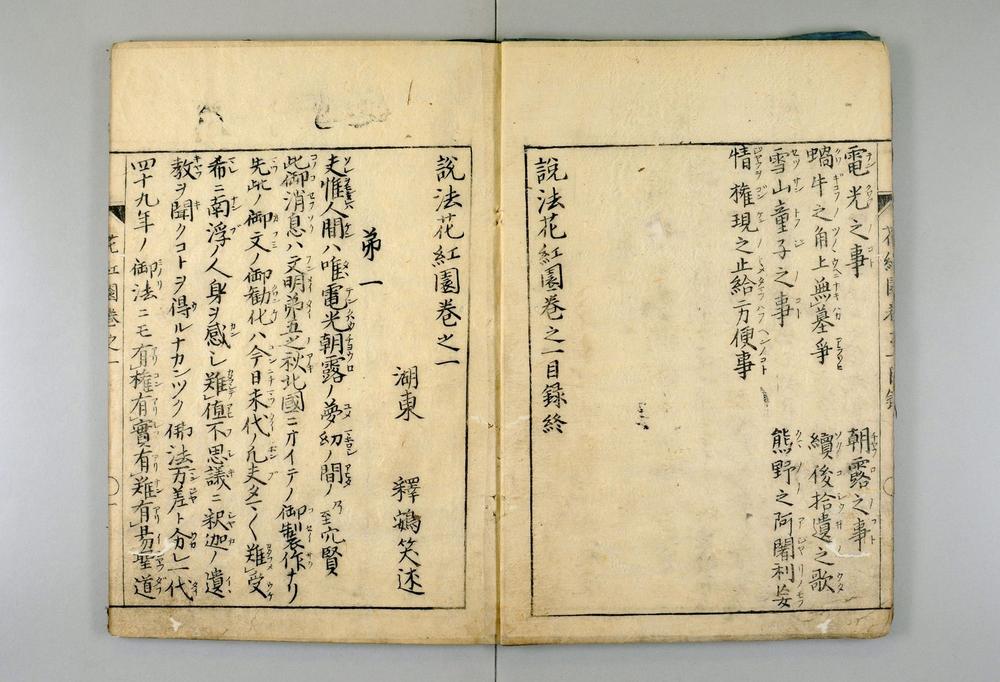 電光之事 朝露之事
蝸牛之角上無墓争 續後拾遺之歌
雪山童子之事 熊野之阿闍利妄
情権現之止給方便事
說法花紅園巻之一目録終
說法花紅園巻之一
湖東 釋 笑述
第一
夫惟人間ハ唯電光朝露ノ夢幻ノ間ノ
此御消息ハ文明第五之秋北國ニオイテノ御製作ナリ
先此ノ御文ノ御勧化ハ今日末代ノ凡夫タマ〱難受
希ニ南浮ノ人身ヲ感シ難値不思議ニ釈迦ノ遺
教ヲ聞クコトヲ得ルナカンツク佛法万差ト分レ一代
四十九年ノ御法ニモ有權有實有難有易聖道
花紅園巻之一